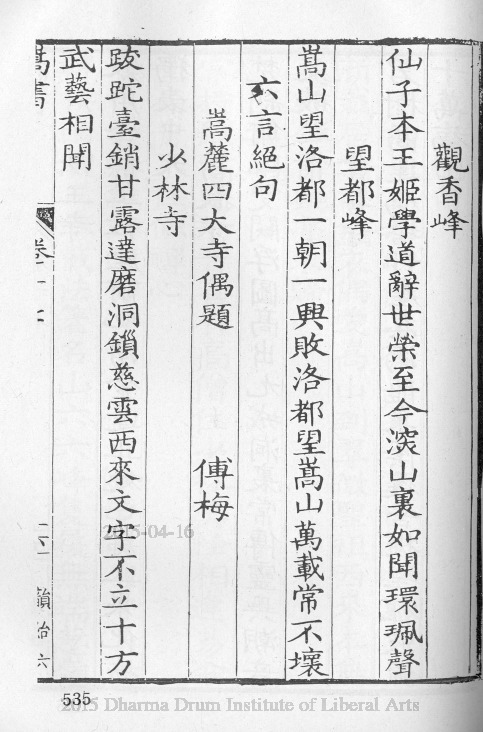 觀香峰
仙子本王姬學道辭世榮至今深山裏如聞環珮聲
望都峰
嵩山望洛都一朝一興敗洛都望嵩山萬載常不壞
六言絕句
嵩麓四大寺偶題 傅梅
少林寺
跋跎臺銷甘露達磨洞鎖慈雲西來文字不立十方
武藝相聞
嵩書
卷十七
六十一
韻始六
2015-04-16
535
2015 Dharma Drum Institute of Liberal Arts